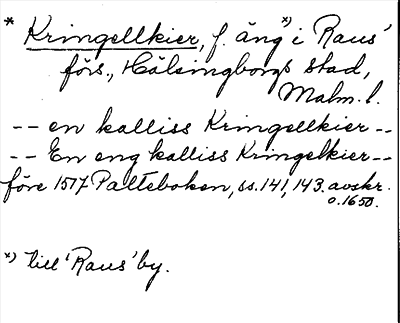 * Kringellkier, f. äng *) i Raus'
förs., Hälsingborgs stad,
Malm. l.
-- en kalliss Kringellkier --
-- En eng kalliss Kringelkier --
före 1517 Palteboken, ss. 141, 143. avskr.
o. 1650.
*) till 'Raus' by.